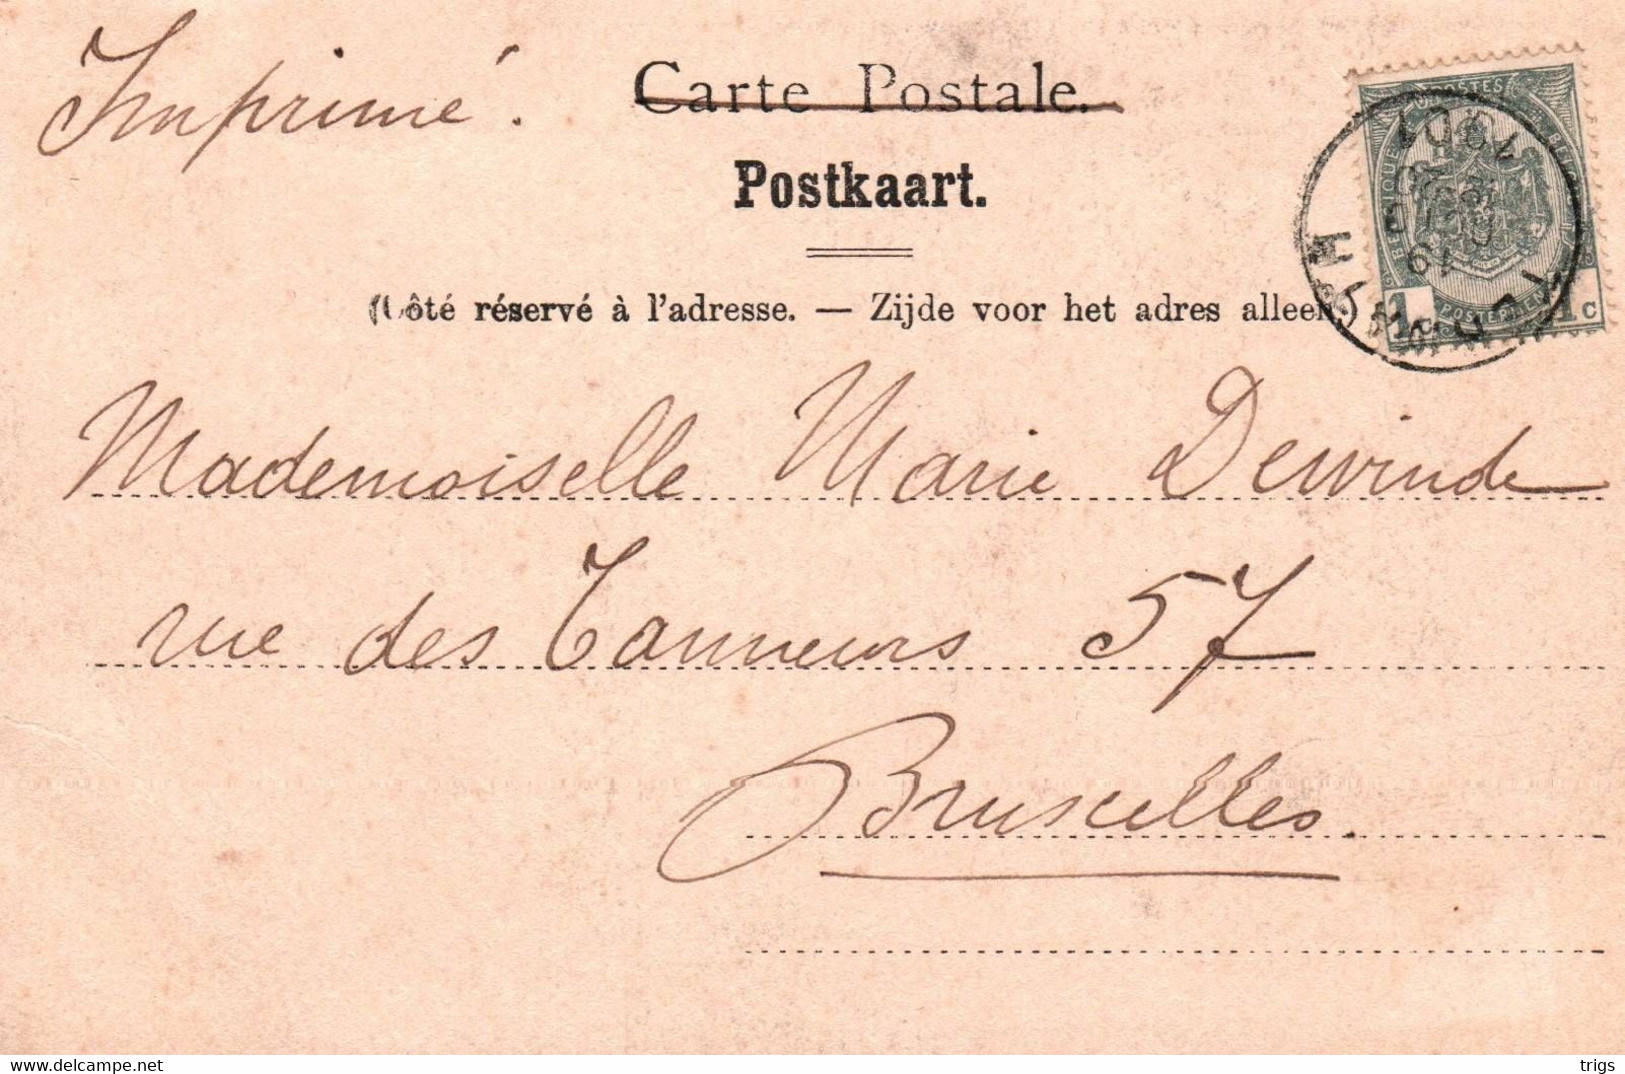 Imprimé.
Carte Postale.
Postkaart.
(Côté réservé à l'adresse. — Zijde voor het adres alleen.)
1901
19
1 c
Mademoiselle Marie Dewinde
rue des Tanneurs 57
Bruxelles.
https://www.delcampe.net
trigs